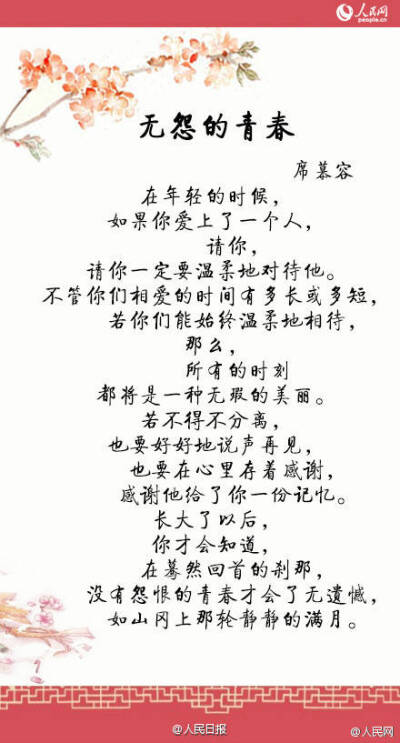 人民网
people.cn
无怨的青春
席慕容
在年轻的时候，
如果你爱上了一个人，
请你，
请你一定要温柔地对待他。
不管你们相爱的时间有多长或多短，
若你们能始终温柔地相待，
那么，
所有的时刻
都将是一种无瑕的美丽。
若不得不分离，
也要好好地说声再见，
也要在心里存着感谢，
感谢他给了你一份记忆。
长大了以后，
你才会知道，
在蓦然回首的刹那，
没有怨恨的青春才会了无遗憾，
如山冈上那轮静静的满月。
@人民日报
@人民网